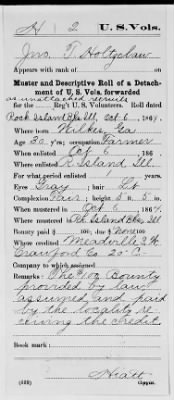 H 2 U.S. Vols.
Jno. T. Holtzclaw
Appears with rank of
Muster and Descriptive Roll of a Detach-
ment of U. S. Vols. forwarded
as unattached recruits
for the Reg't U.S. Volunteers. Roll dated
Rock Island Bks Ill, Oct 6, 1864.
Where born Wilkes, Ga
Age 20 y'rs; occupation Farmer
When enlisted Oct 6, 1864.
Where enlisted R. Island Ill.
For what period enlisted 1 years.
Eyes Gray; hair Lt
Complexion Fair; height 5 ft. 5 in.
When mustered in Oct 6, 1864.
Where mustered in Rk Island Bks Ill
Bounty paid $ 100; due $ None 100
Where credited Meadville 2 W
Crawford Co 20" C.
Company to which assigned
Remarks: The $100 Bounty
provided by law
assumed and paid
by the locality re-
ceiving the credit.
Book mark:
Hiatt
(339) Copyist.